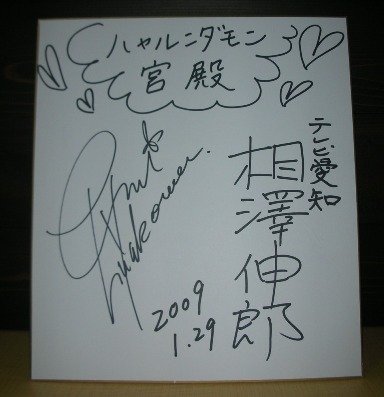 ハャルニダモン
宮殿
テレビ愛知
相澤伸郎
2009
1.29